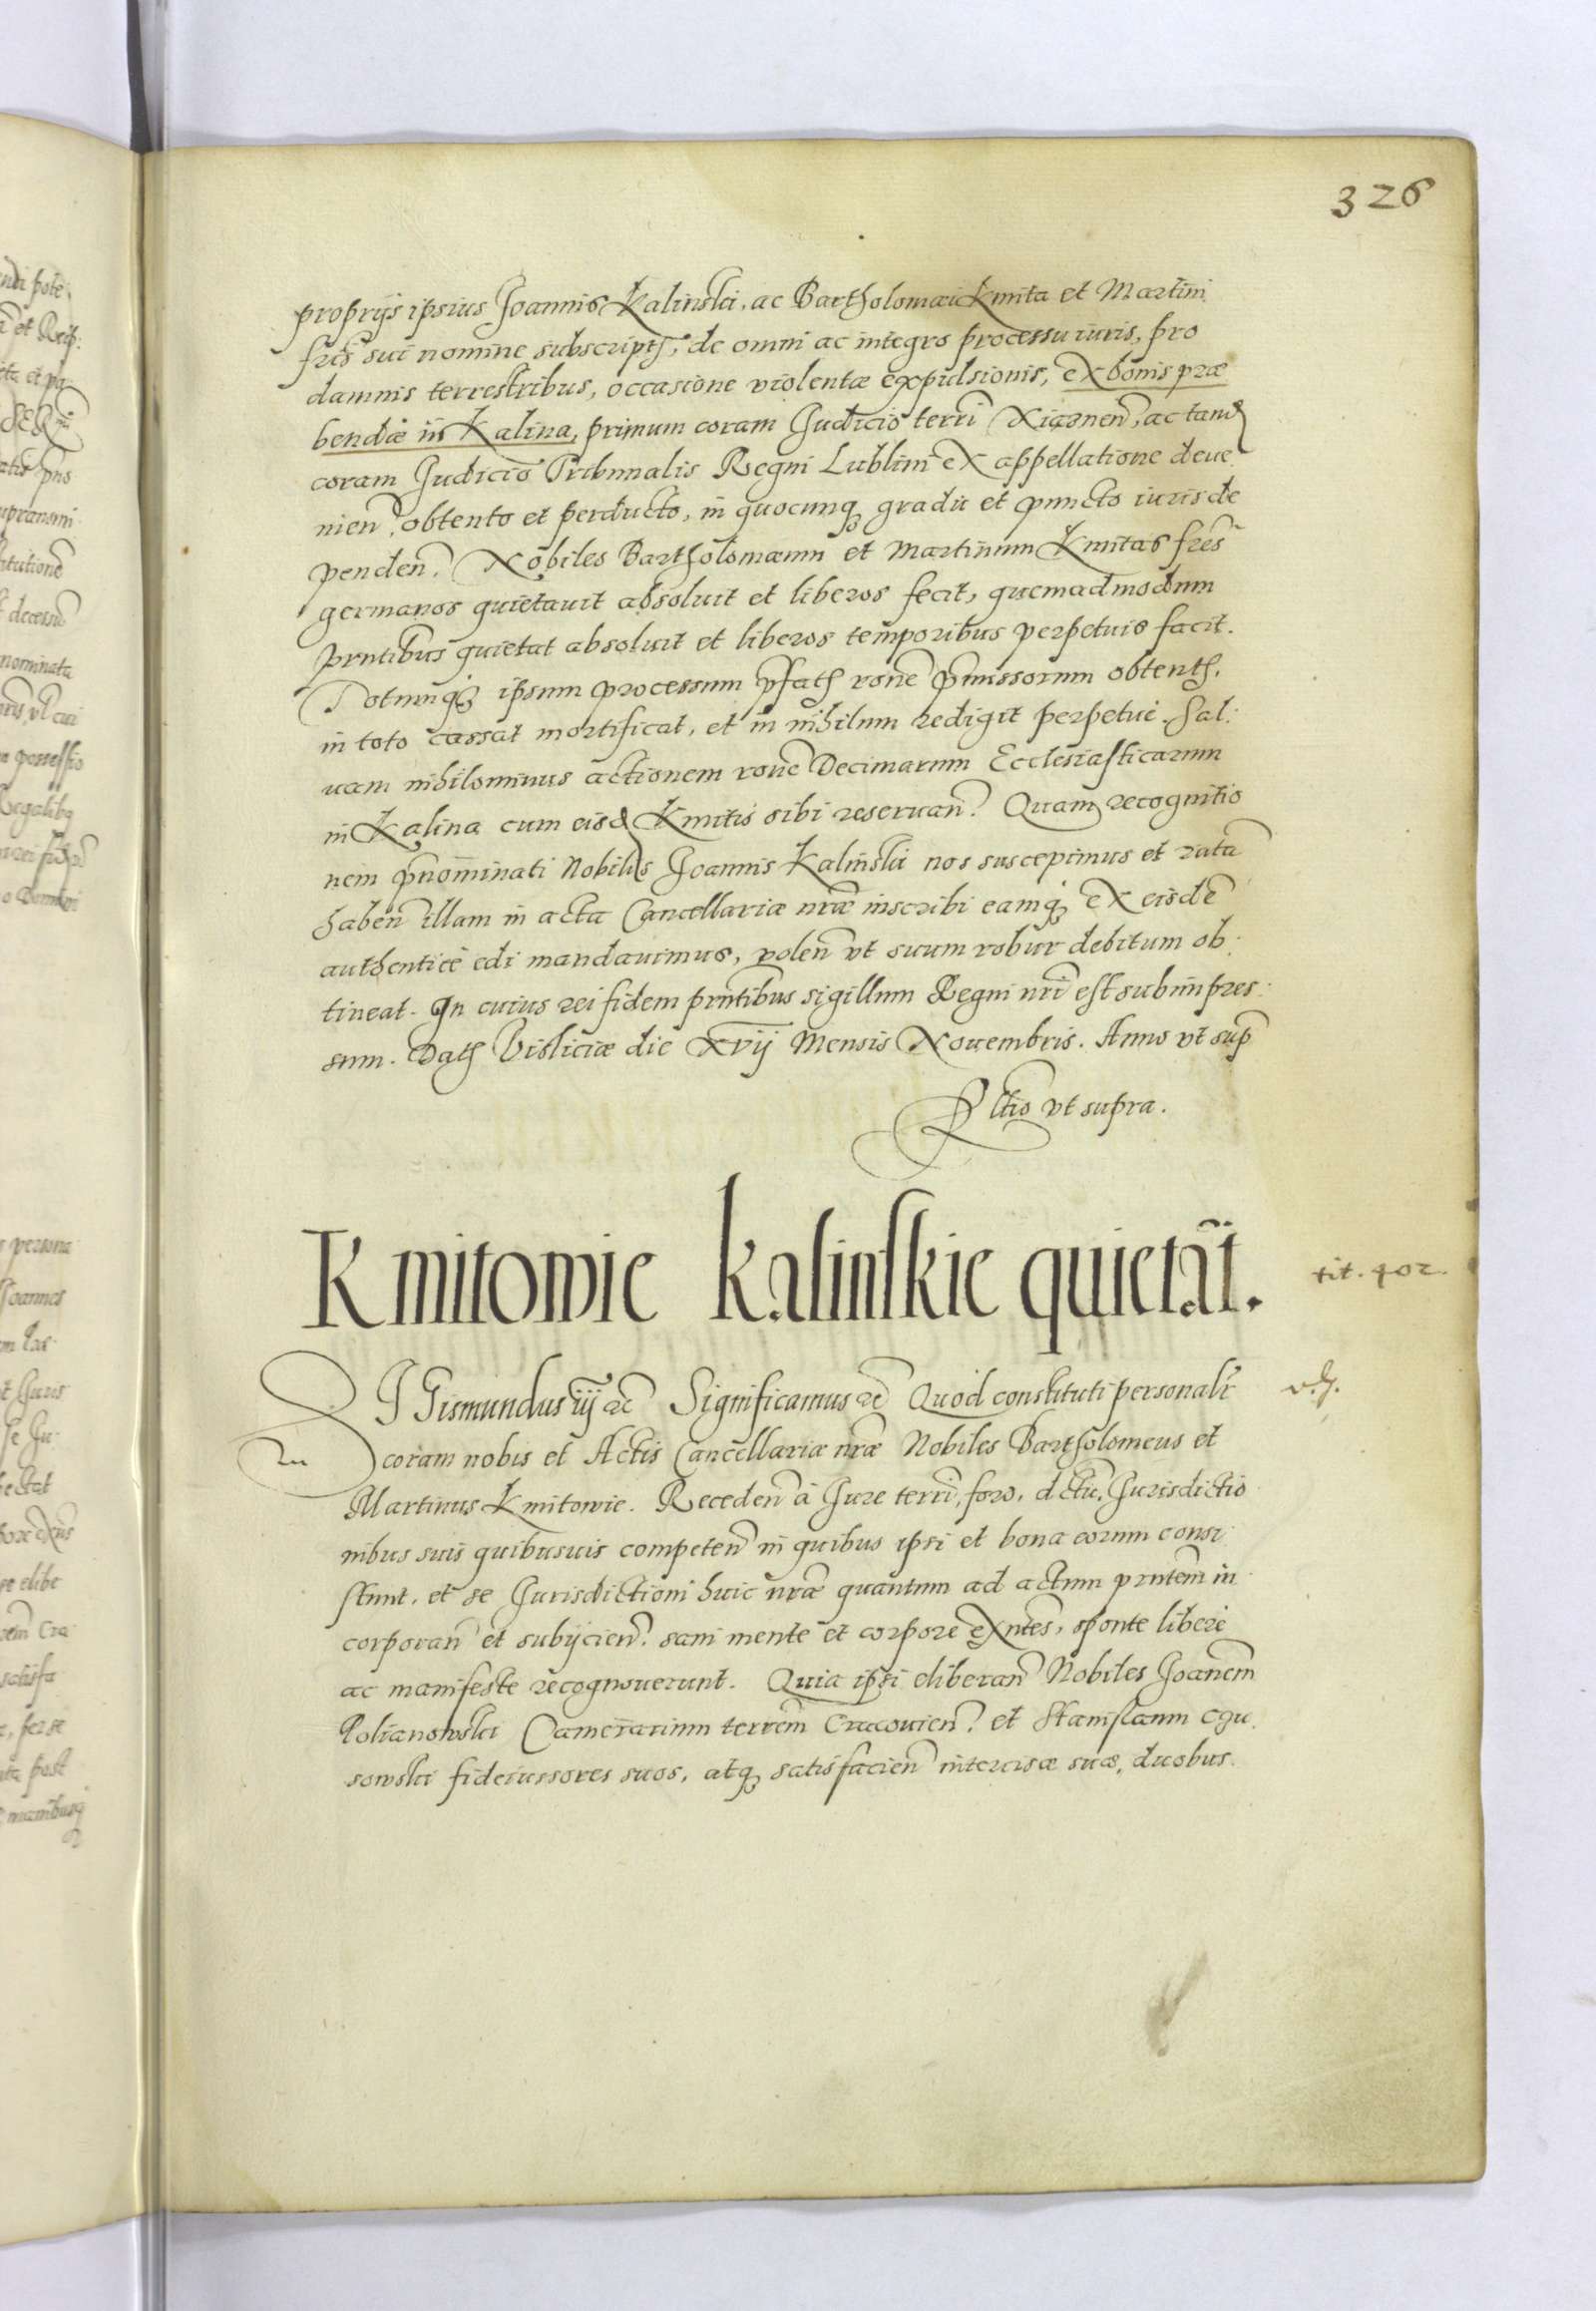 326
proprijs ipsius Joannis Kalinski, ac Bartholomæi Kmita et Martini
frĩs sui nomine subscript, de omni ac integro processu iuris, pro
damnis terrestribus, occasione violentæ expulsionis, ex bonis præ
bendæ in Kalina, primum coram Judicio terri Xiąznen, ac tand
coram Judicio Tribunalis Regni Lublini ex appellatione deue
nien, obtento et perducto, in quocunq gradu et puncto iuris de
penden. Nobiles Bartholomæum et Martinum Kmitas fres
germanos quietauit absoluit et liberos fecit, quemadmodum
prntibus quietat absoluit et liberos temporibus perpetuis facit.
Totumq ipsum processum pfat rone pmissorum obtent,
in toto cassat mortificat, et in nihilum redigit perpetue. Sal:
uam nihilominus actionem rone Decimarum Ecclesiasticarum
in Kalina cum eisd Kmitis sibi reseruan. Quam recognitio
nem pnominati Nobilis Joannis Kalinski nos suscepimus et rata
haben illam in acta Cancellariæ nræ inscribi eamq ex eisdē
authentice edi mandauimus, volen vt suum robur debitum ob
tineat. In cuius rei fidem prntibus sigillum Regni nri est subimpres
sum. Dat Visliciæ die xvij Mensis Nouembris. Anno vt sup
Rltio vt supra.
Kmitowie Kalinskie quietāt.
tit. 402.
SIGismundus iij etc Significamus etc Quod constituti personalr
coram nobis et Actis Cancellariæ nræ Nobiles Bartholomeus et
Martinus Kmitowie. Receden à Jure terri, foro, dctu, Jurisdictio
nibus suis quibusuis competen in quibus ipsi et bona eorum consi
stunt, et se Jurisdictioni huic nræ quantum ad actum prntem in
corporan et subijcien. sani mente et corpore exntes, sponte libere
ac manifeste recognouerunt. Quia ipsi eliberan Nobiles Joanem
Polianowski Camerarium terrem Cracouien. et Stanislaum
sowski fideiussores suos, atq satisfacien intercisæ suæ, duobus